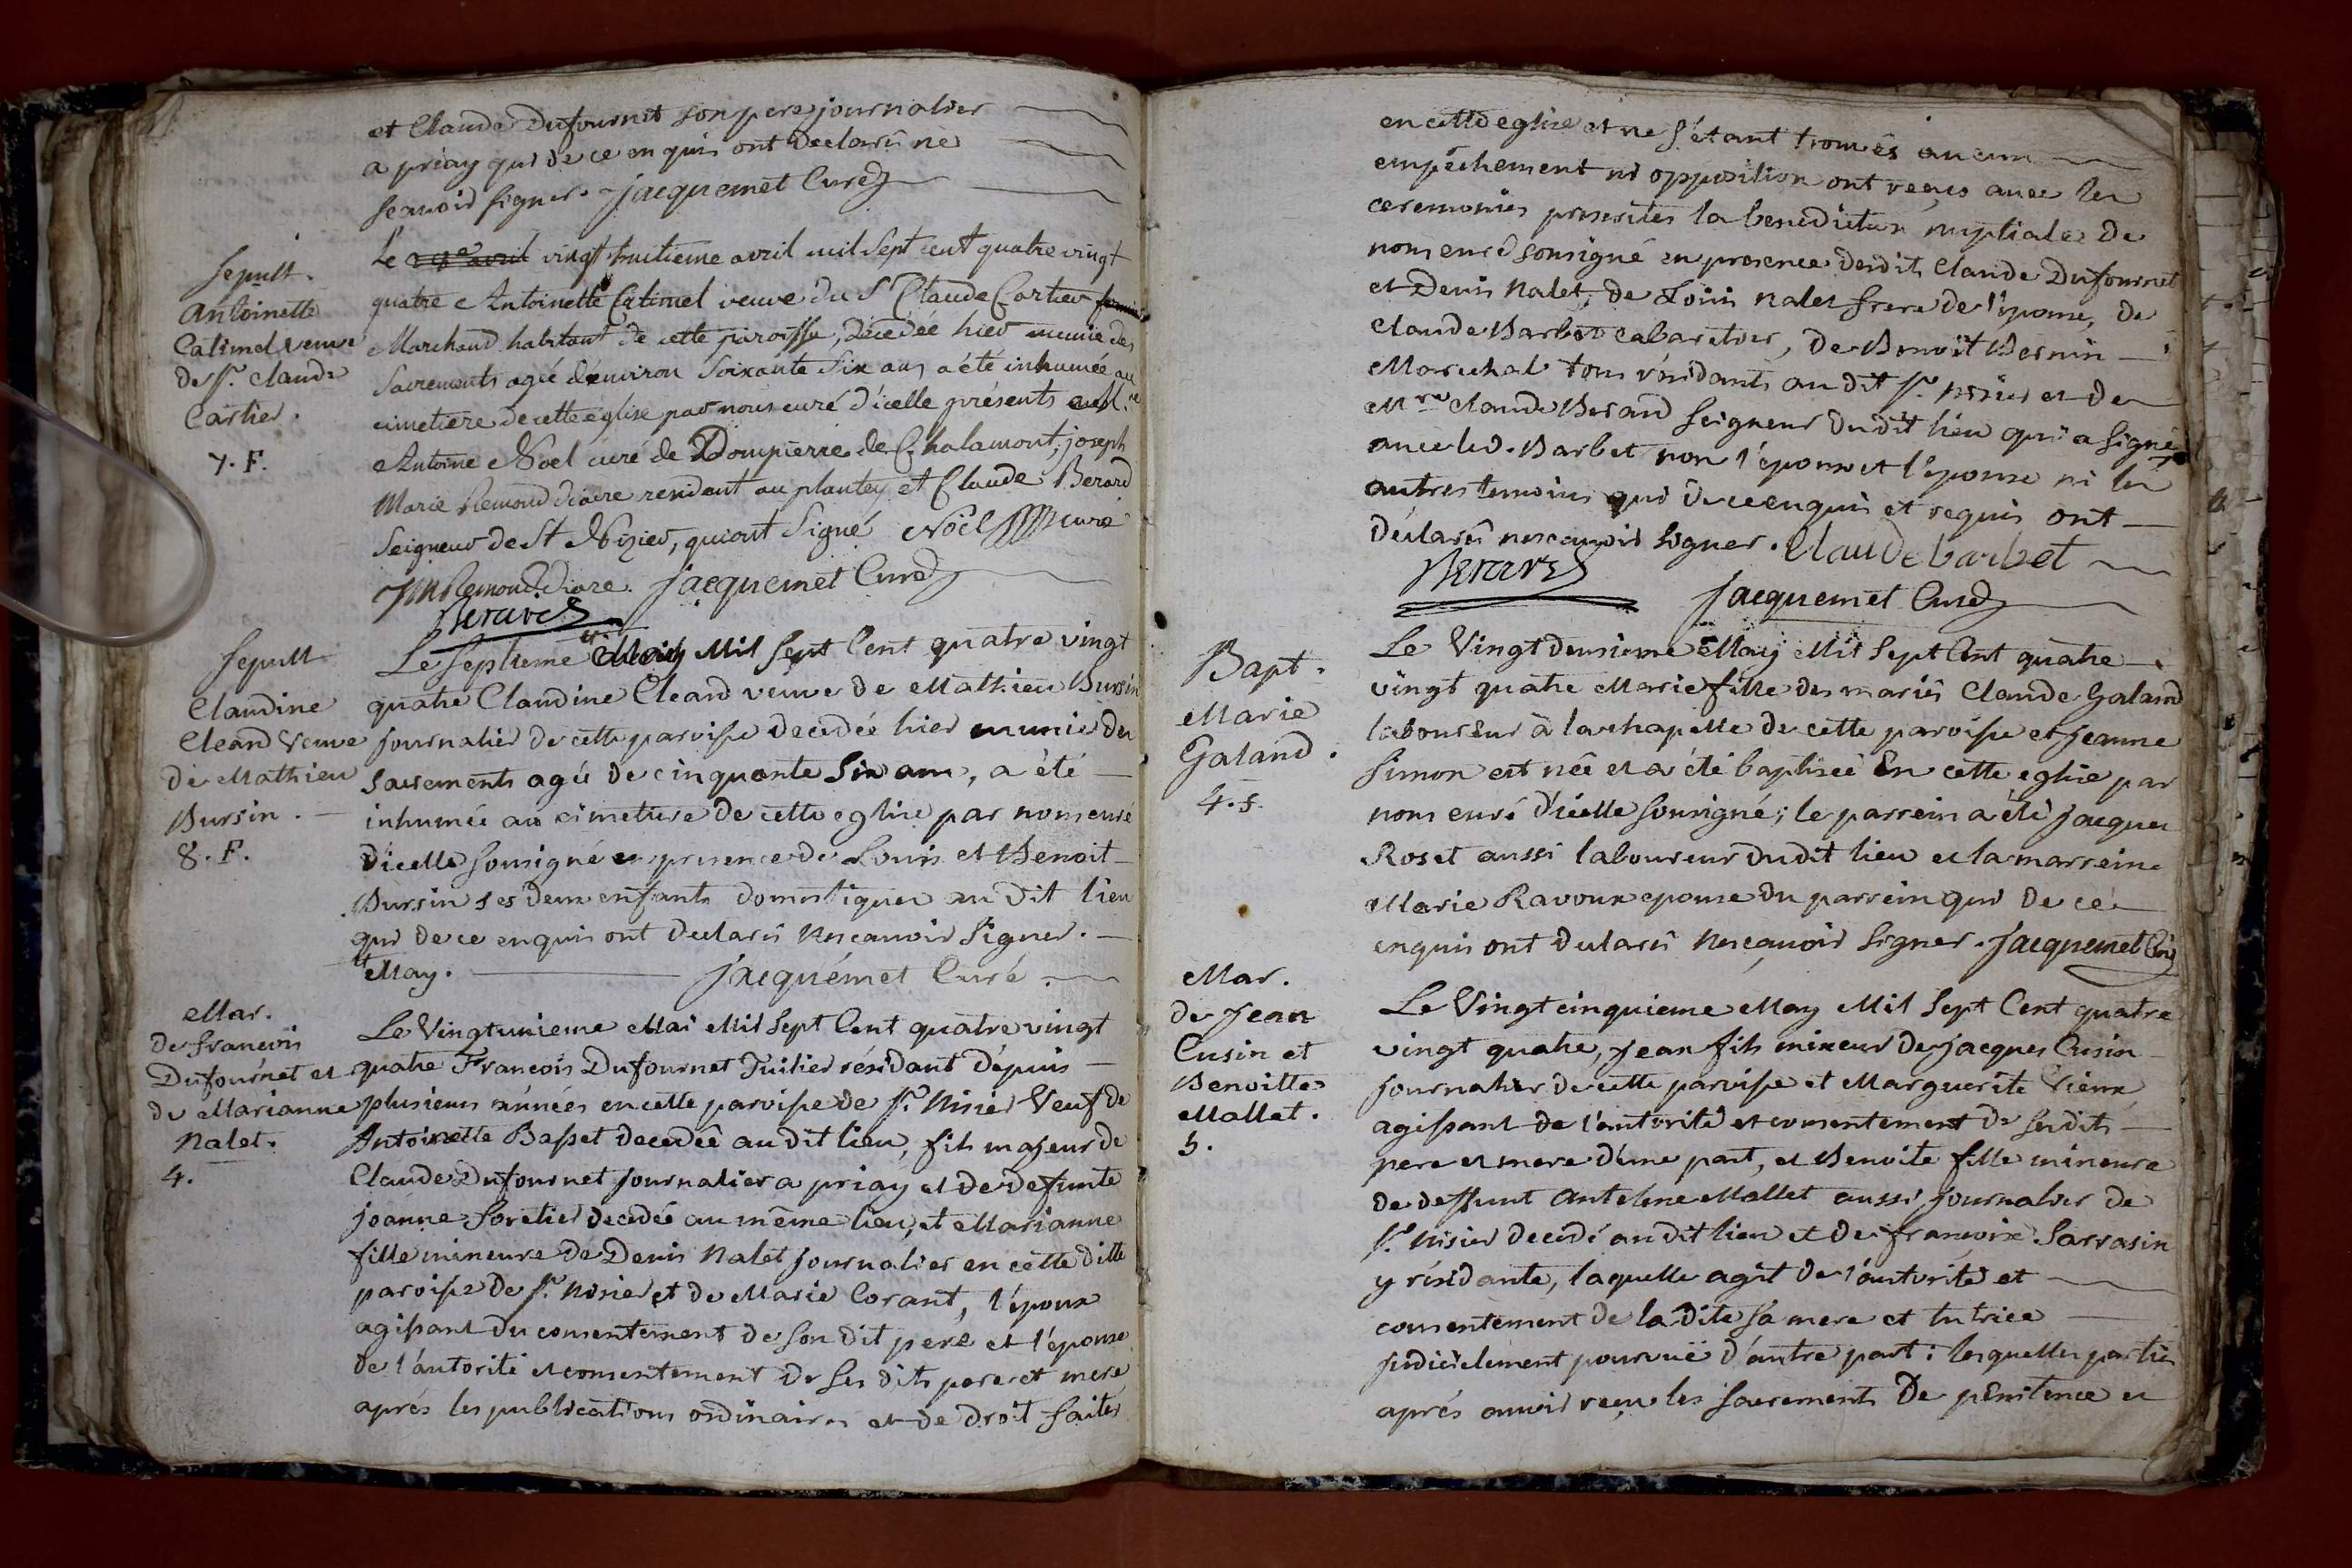 et Claude Dufournet son pere journalier
a priay qui de ce enquis ont declaré ne
scavoir signer. Jacquemet Curé
Sepult.
Antoinette
Catimel veuve
de Sr. Claude
Cartier.
7. F.
Le vingt huitieme avril mil sept cent quatre vingt
quatre Antoinette Catimel veuve du Sr Claude Cartier
Marchand habitant de cette paroisse, décedée hier munie des
Sacrements agée d'environ Soixante Six ans a été inhumée au
cimetiere de cette eglise par nous curé d'icelle présents
Antoine Noel curé de Dompierre de Chalamont, joseph
Marie Remond diacre residant au plantey et Claude Berard
Seigneur de St Nizier, qui ont Signé Noël curé
JM Remond diacre. Jacquemet Curé
Berard
Sepult
Claudine
Cleand Veuve
de Mathieu
Bursin.
8. F.
Le septieme May Mil Sept Cent quatre vingt
quatre Claudine Cleand veuve de Mathieu Bursin
journalier de cette paroisse decedée hier munie des
sacrements agée de cinquante Six ans, a été
inhumée au cimetiere de cette eglise par nous curé
dicelle soussigné en presence de Louis et Benoit
Bursin ses deux enfants domestiques au dit lieu
qui de ce enquis ont declaré ne scavoir signer.
May. Jacquémet Curé.
Mar.
de francois
Dufournet et
de Marianne
Nalet.
4.
Le Vingtunieme Mai Mil Sept Cent quatre vingt
quatre Francois Dufournet Tuilier résidant dépuis
plusieurs années en cette paroisse de St. Nisier Veuf de
Antoinette Basset decedée au dit lieu, fils majeur de
Claude Dufournet journalier a priay et de defunte
joanne Soretier decedée au même lieu, et Marianne
fille mineure de Denis Nalet journalier en cette ditte
paroisse de St. Nisier et de Marie Corant, l'époux
agissant du consentement de son dit peré et l'épouse
de l'autorité et consentement de ses dits pere et mere
aprés les publications ordinaires et de droit faites
en cette eglise et ne s'étant trouvés aucun
empêchement ni opposition ont reçus avec les
ceremonies prescrites la benediction nuptiale de
nous curé sousigné en presence desdits Claude Dufournet
et Denis Nalet, de Louis Nalet frere de l'épouse, de
Claude Barbet cabaretier, de Benoît Bernin
Marechal tous résidants au dit St. Nisier et de
Mre Claude Berard Seigneur dudit lieu qui a signé
avec led. Barbet non l'époux et l'épouse ni les
autres temoins qui de ce enquis et requis ont
déclaré ne scavoir signer. Claude barbet
Berard
Jacquemet Curé
Bapt.
Marie
Galand.
4. f.
Le Vingt deusieme May Mil Sept Cent quatre
vingt quatre Marie fille des mariés Claude Galand
laboureur à la chapelle de cette paroisse et Jeanne
Simon est née et a été baptisée En cette eglise par
nous curé d'icelle sousigné; le parrein a été Jacques
Roset aussi laboureur dudit lieu et la marreine
Marie Ravoux epouse du parrein qui de ce
enquis ont declaré ne sçavoir signer. Jacquemet Curé
Mar.
de Jean
Cusin et
Benoitte
Mallet.
5.
Le Vingt cinquieme May Mil Sept Cent quatre
vingt quatre, Jean fils mineur de Jacques Cusin
journalier de cette paroisse et Marguerite Vieux
agissant de l'autorité et consentement de sesdits
pere et mere d'une part, et Benoite fille mineure
de deffunt Antelme Mallet aussi journalier de
St. Nisier decedé au dit lieu et de francoise Sarrasin
y résidante, laquelle agit de l'autorité et
consentement de la dite sa mere et tutrice
judicielement pourvuë d'autre part: lesquelles parties
aprés avoir reçu les sacrements De pénitence et